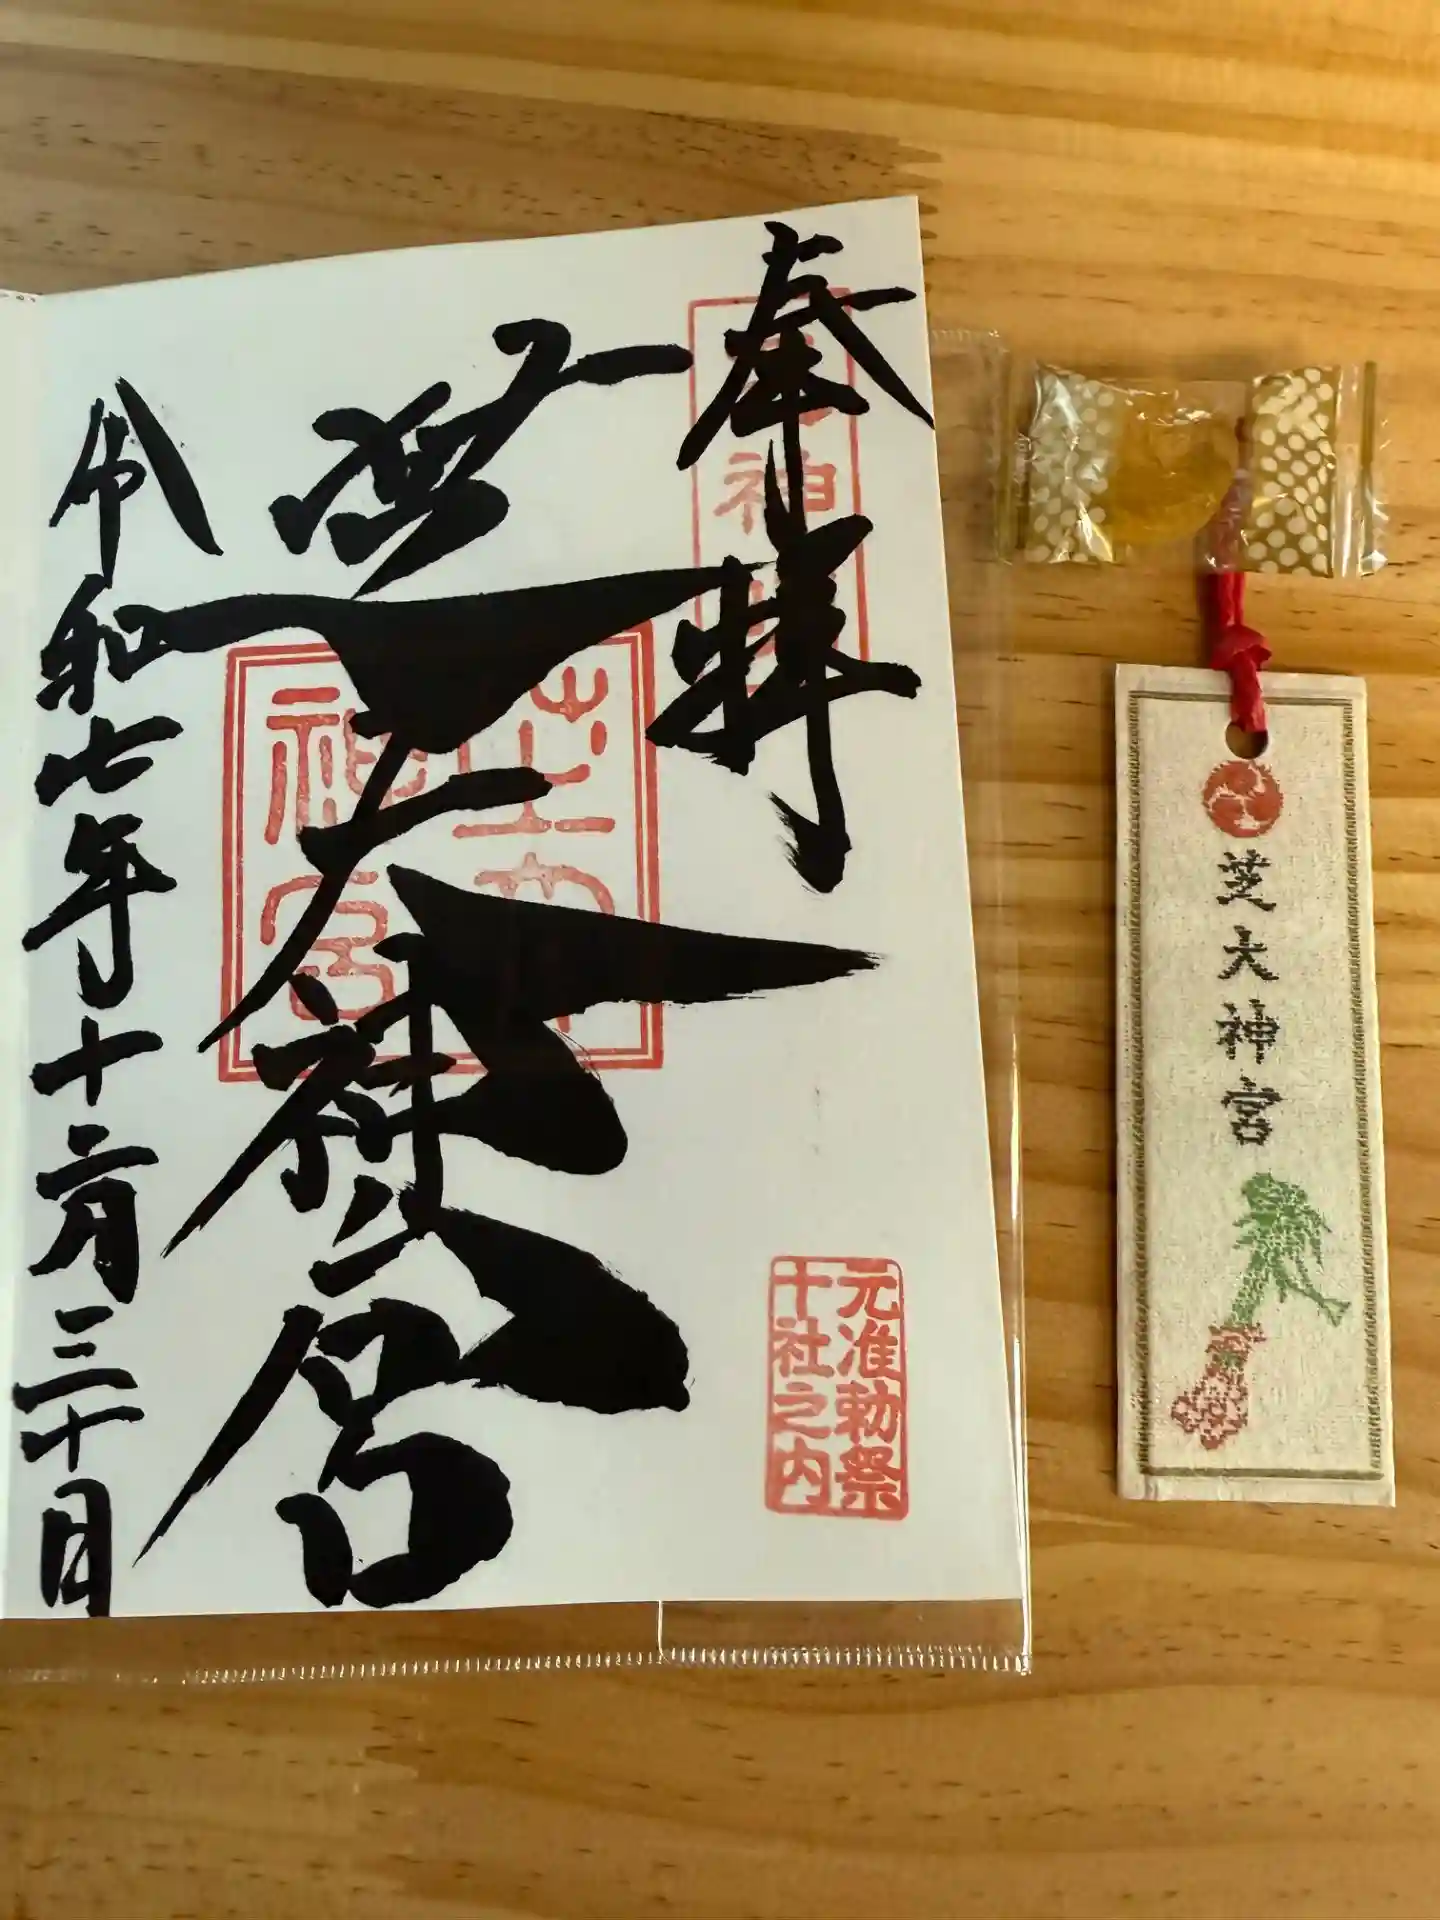 奉拝
芝大神宮
令和七年十二月三十日
芝大神宮
元准勅祭
十社之内
芝大神宮